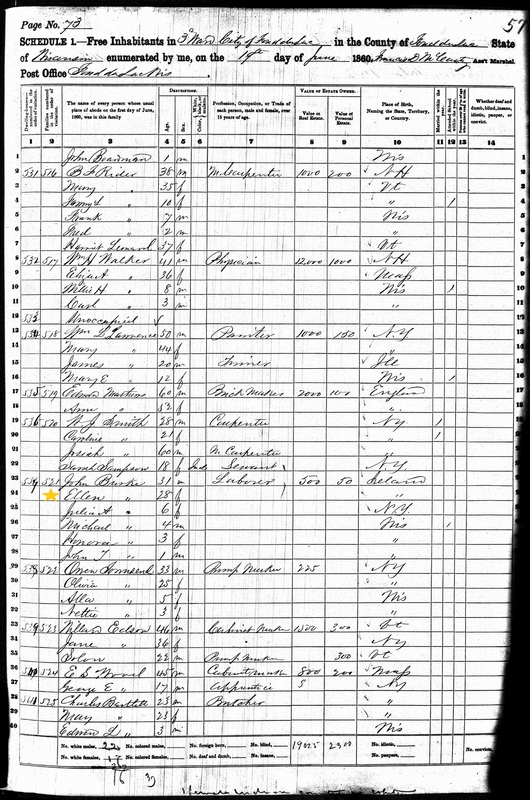 Page No. 73
57
SCHEDULE 1.—Free Inhabitants in 3d Ward City of Fond du Lac in the County of Fond du Lac State
of Wisconsin enumerated by me, on the 19th day of June 1860. Ass't Marshal.
Post Office Fond du Lac Wis
DESCRIPTION. VALUE OF ESTATE OWNED.
The name of every person whose usual place of abode on the first day of June, 1860, was in this family. Age. Sex. Profession, Occupation, or Trade of each person, male and female, over 15 years of age. Value of Real Estate. Value of Personal Estate. Place of Birth, Naming the State, Territory, or Country. Whether deaf and dumb, blind, insane, idiotic, pauper, or convict.
1 2 3 4 5 6 7 8 9 10 11 12 13 14
1 John Boardman 1 m Wis
2 531 516 B F Rider 38 m M Carpenter 1000 200 N H
3 Mary " 35 f Vt
4 Fanny L " 10 f " 1
5 Frank " 7 m Wis
6 Fred " 2 m "
7 Harriet Leonard 57 f Vt
8 532 517 Wm H Walker 41 m Physician 12,000 1000 N H
9 Eliza A " 36 f Mass
10 Millie H " 8 Wis 1
11 Carl " 3 m "
12 533 Unoccupied
13 534 518 Wm L Lawrence 50 m Painter 1000 150 N.Y.
14 Mary " 44 f "
15 James " 20 m Ill
16 Mary E " 12 f Wis 1
17 535 519 Edward 60 m Brick Maker 2000 100 England
18 Ann " 52 f "
19 536 520 Smith 28 m Carpenter NY 1
20 Caroline " 21 f " 1
21 Josiah " 60 m M Carpenter "
22 Sarah Sampson 18 f Servant N.Y.
23 537 521 John Burke 31 m Laborer 500 50 Ireland
24 Ellen " 28 f "
25 Julia A " 6 f N.Y.
26 Michael " 4 m Wis 1
27 Honora " 3 f "
28 John T " 1 m "
29 538 522 Owen Townsend 33 m Pump Maker 225 NY
30 Olivia " 25 f "
31 Alla " 5 f Wis
32 Nettie " 3 f "
33 539 523 Willard Edson 46 m Cabinet Maker 1500 300 Vt
34 Jane " 36 f NY
35 Solon " 22 m Pump Maker 300 Vt
36 540 524 E S Wood 45 m Cabinet Maker 800 200 Mass
37 George E " 17 m Apprentice NY
38 541 525 Charles Bartlett 23 m Butcher "
39 Mary " 23 f "
40 Edwin L " 3 m Wis
No. white males, 22 No. colored males, No. foreign born, No. blind, 19025 2300 No. idiotic, No. convicts,
No. white females, 17 No. colored females, No. deaf and dumb, No. insane, No. paupers,